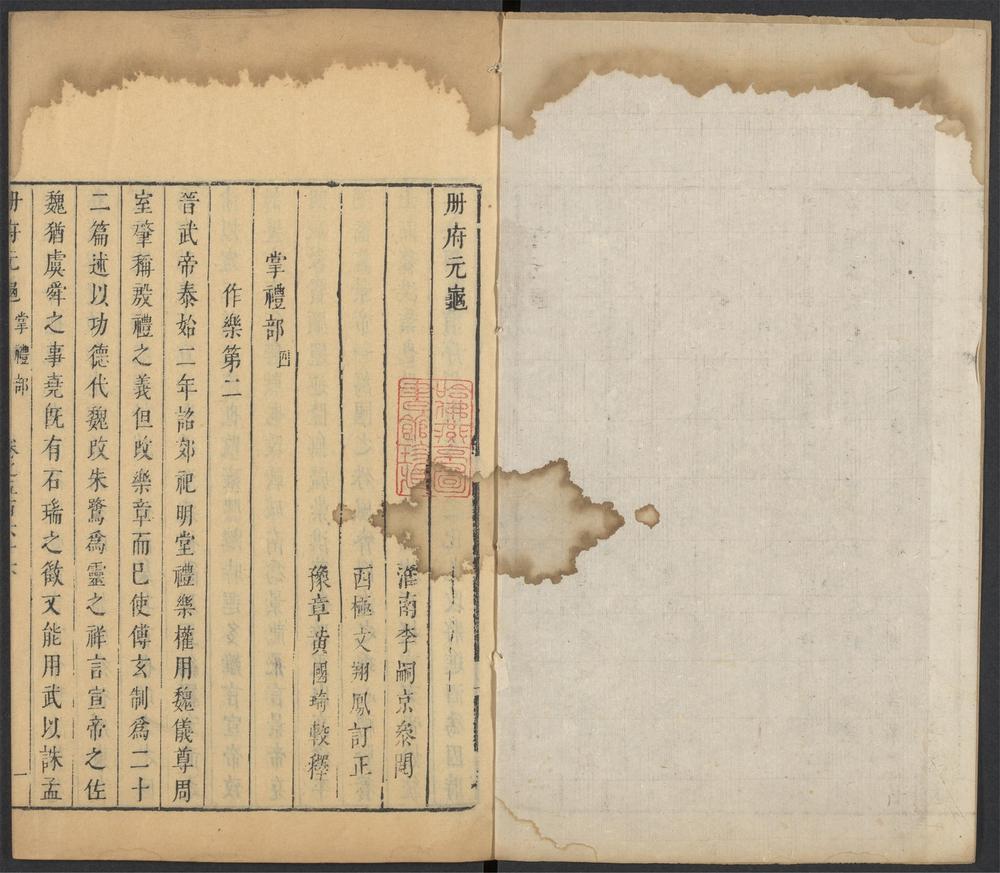 册府元龜
淮南李嗣京叅閱
西極文翔鳳訂正
豫章黃國琦較釋
掌禮部 四
作樂第二
晉武帝泰始二年詔郊祀明堂禮樂權用魏儀尊周
室肇稱殷禮之義但改樂章而已使傅玄制爲二十
二篇述以功德代魏改朱鷺爲靈之祥言宣帝之佐
魏猶虞舜之事堯旣有石瑞之徵又能用武以誅孟
册府元龜 掌禮部
一
哈佛燕京圖書館珍藏